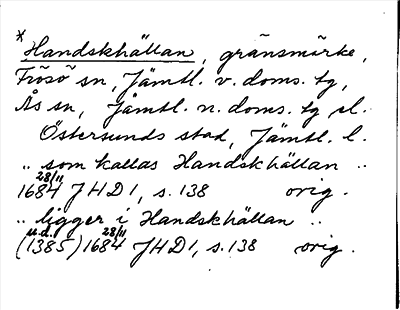 *Handskhällan, gränsmärke,
Frösö sn, Jämtl. v. doms. tg,
Ås sn, Jämtl. n. doms. tg el.
Östersunds stad, Jämtl. l.
.. som kallas Handskhällan ..
1684 28/11 JHD1, s. 138 orig.
.. ligger i Handskhällan ..
u.d. (1385) 1684 28/11 JHD1, s. 138 orig.